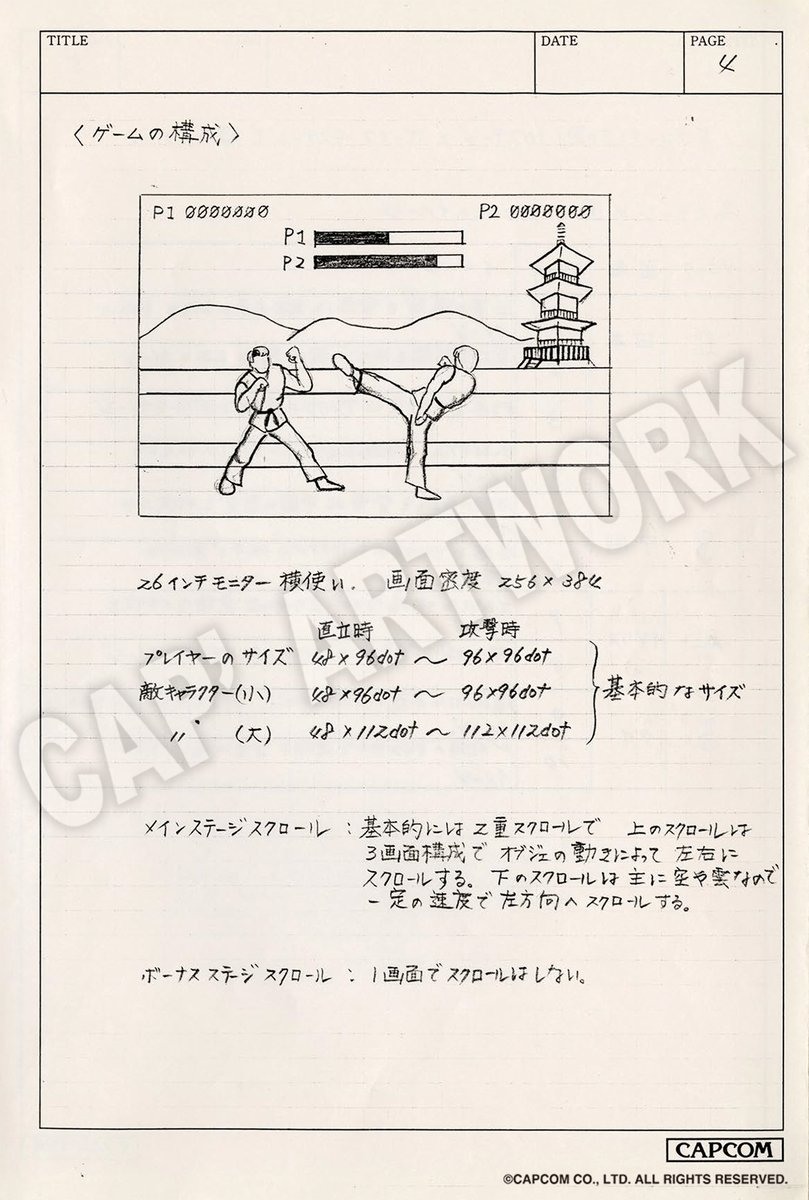 TITLE
DATE
PAGE
4
〈ゲームの構成〉
P1 0000000
P2 0000000
P1
P2
26インチモニター 横使い. 画面密度 256×384
直立時 攻撃時
プレイヤーのサイズ 48×96dot ～ 96×96dot
敵キャラクター(小) 48×96dot ～ 96×96dot
〃 (大) 48×112dot ～ 112×112dot
基本的なサイズ
メインステージスクロール : 基本的には2重スクロールで 上のスクロールは
3画面構成で オブジェの動きによって 左右に
スクロールする。下のスクロールは主に空や雲なので
一定の速度で左方向へスクロールする。
ボーナスステージスクロール : 1画面でスクロールはしない。
CAP' ARTWORK
CAPCOM
©CAPCOM CO., LTD. ALL RIGHTS RESERVED.